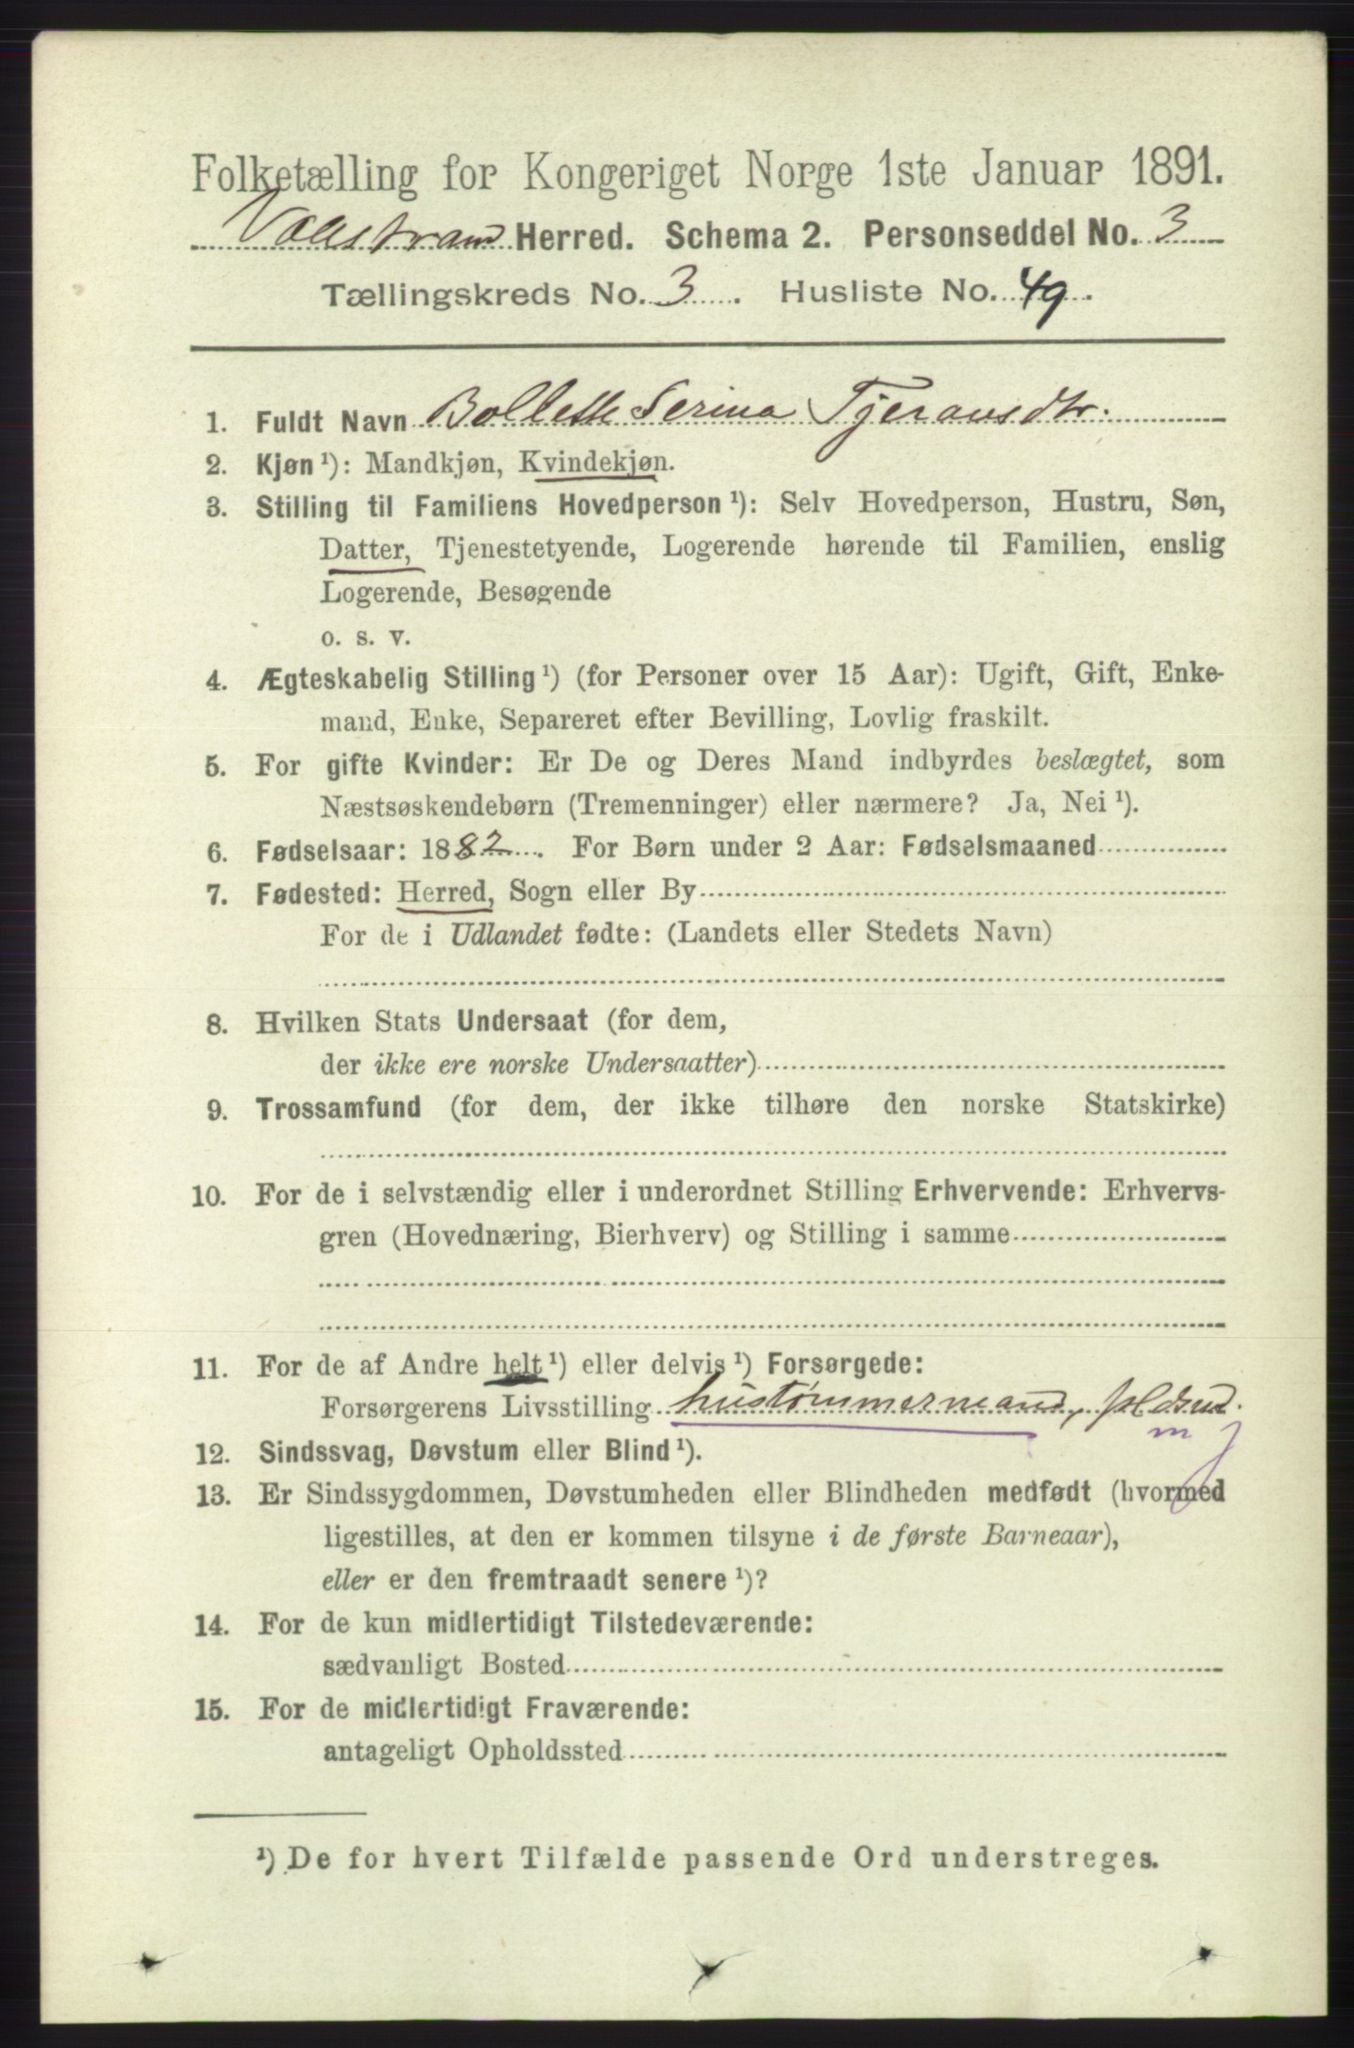 Folketælling for Kongeriget Norge 1ste Januar 1891.
Valestrand Herred. Schema 2. Personseddel No. 3
Tællingskreds No. 3. Husliste No. 49.
1. Fuldt Navn Bollette Serina Tjeransdtr.
2. Kjøn ¹): Mandkjøn, Kvindekjøn.
3. Stilling til Familiens Hovedperson ¹): Selv Hovedperson, Hustru, Søn,
Datter, Tjenestetyende, Logerende hørende til Familien, enslig
Logerende, Besøgende
o. s. v.
4. Ægteskabelig Stilling ¹) (for Personer over 15 Aar): Ugift, Gift, Enke-
mand, Enke, Separeret efter Bevilling, Lovlig fraskilt.
5. For gifte Kvinder: Er De og Deres Mand indbyrdes beslægtet, som
Næstsøskendebørn (Tremenninger) eller nærmere? Ja, Nei ¹).
6. Fødselsaar: 1882. For Børn under 2 Aar: Fødselsmaaned
7. Fødested: Herred, Sogn eller By
For de i Udlandet fødte: (Landets eller Stedets Navn)
8. Hvilken Stats Undersaat (for dem,
der ikke ere norske Undersaatter)
9. Trossamfund (for dem, der ikke tilhøre den norske Statskirke)
10. For de i selvstændig eller i underordnet Stilling Erhvervende: Erhvervs-
gren (Hovednæring, Bierhverv) og Stilling i samme
11. For de af Andre helt ¹) eller delvis ¹) Forsørgede:
Forsørgerens Livsstilling hustømmermand,
m
12. Sindssvag, Døvstum eller Blind ¹).
13. Er Sindssygdommen, Døvstumheden eller Blindheden medfødt (hvormed
ligestilles, at den er kommen tilsyne i de første Barneaar),
eller er den fremtraadt senere ¹)?
14. For de kun midlertidigt Tilstedeværende:
sædvanligt Bosted
15. For de midlertidigt Fraværende:
antageligt Opholdssted
¹) De for hvert Tilfælde passende Ord understreges.